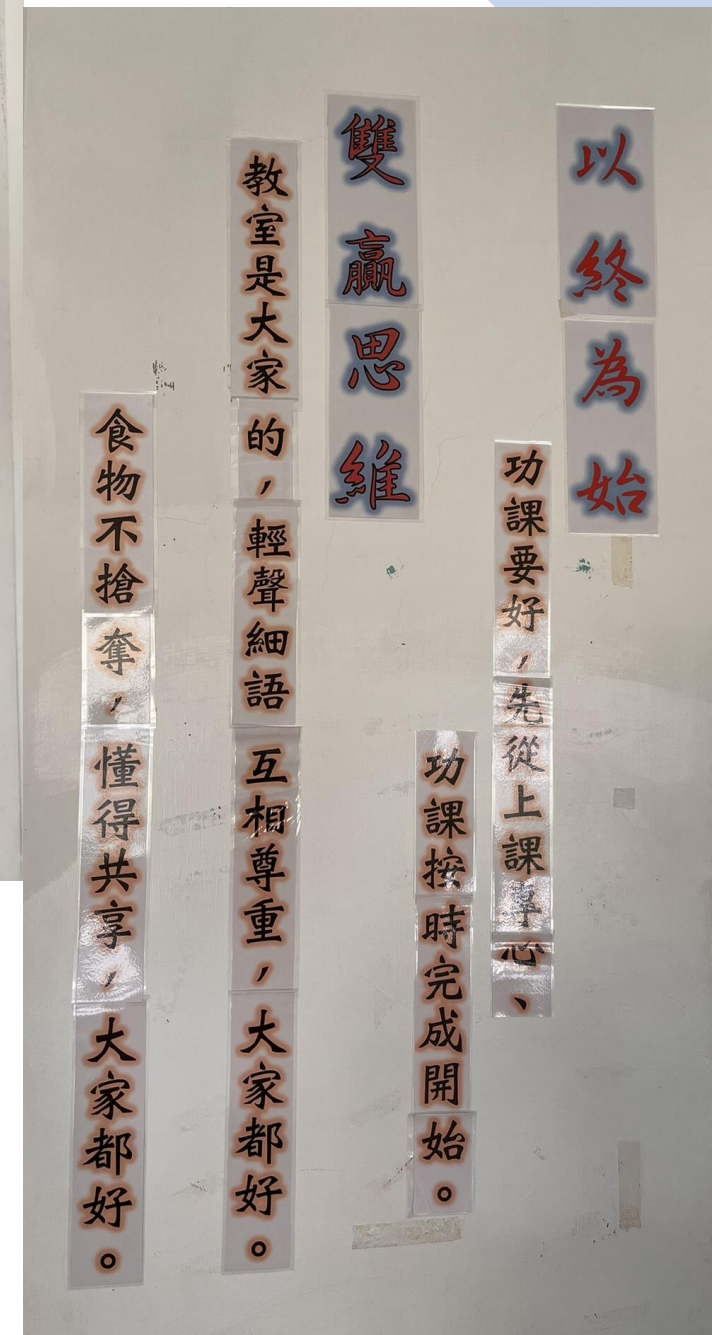 以終為始
功課要好，先從上課專心、
功課按時完成開始。
雙贏思維
教室是大家的，輕聲細語互相尊重，大家都好。
食物不搶奪，懂得共享，大家都好。